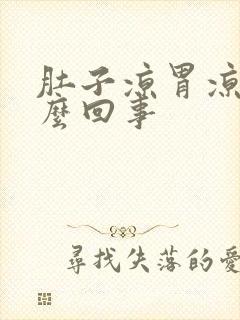 肚子凉胃凉
麼回事
尋找失落的愛